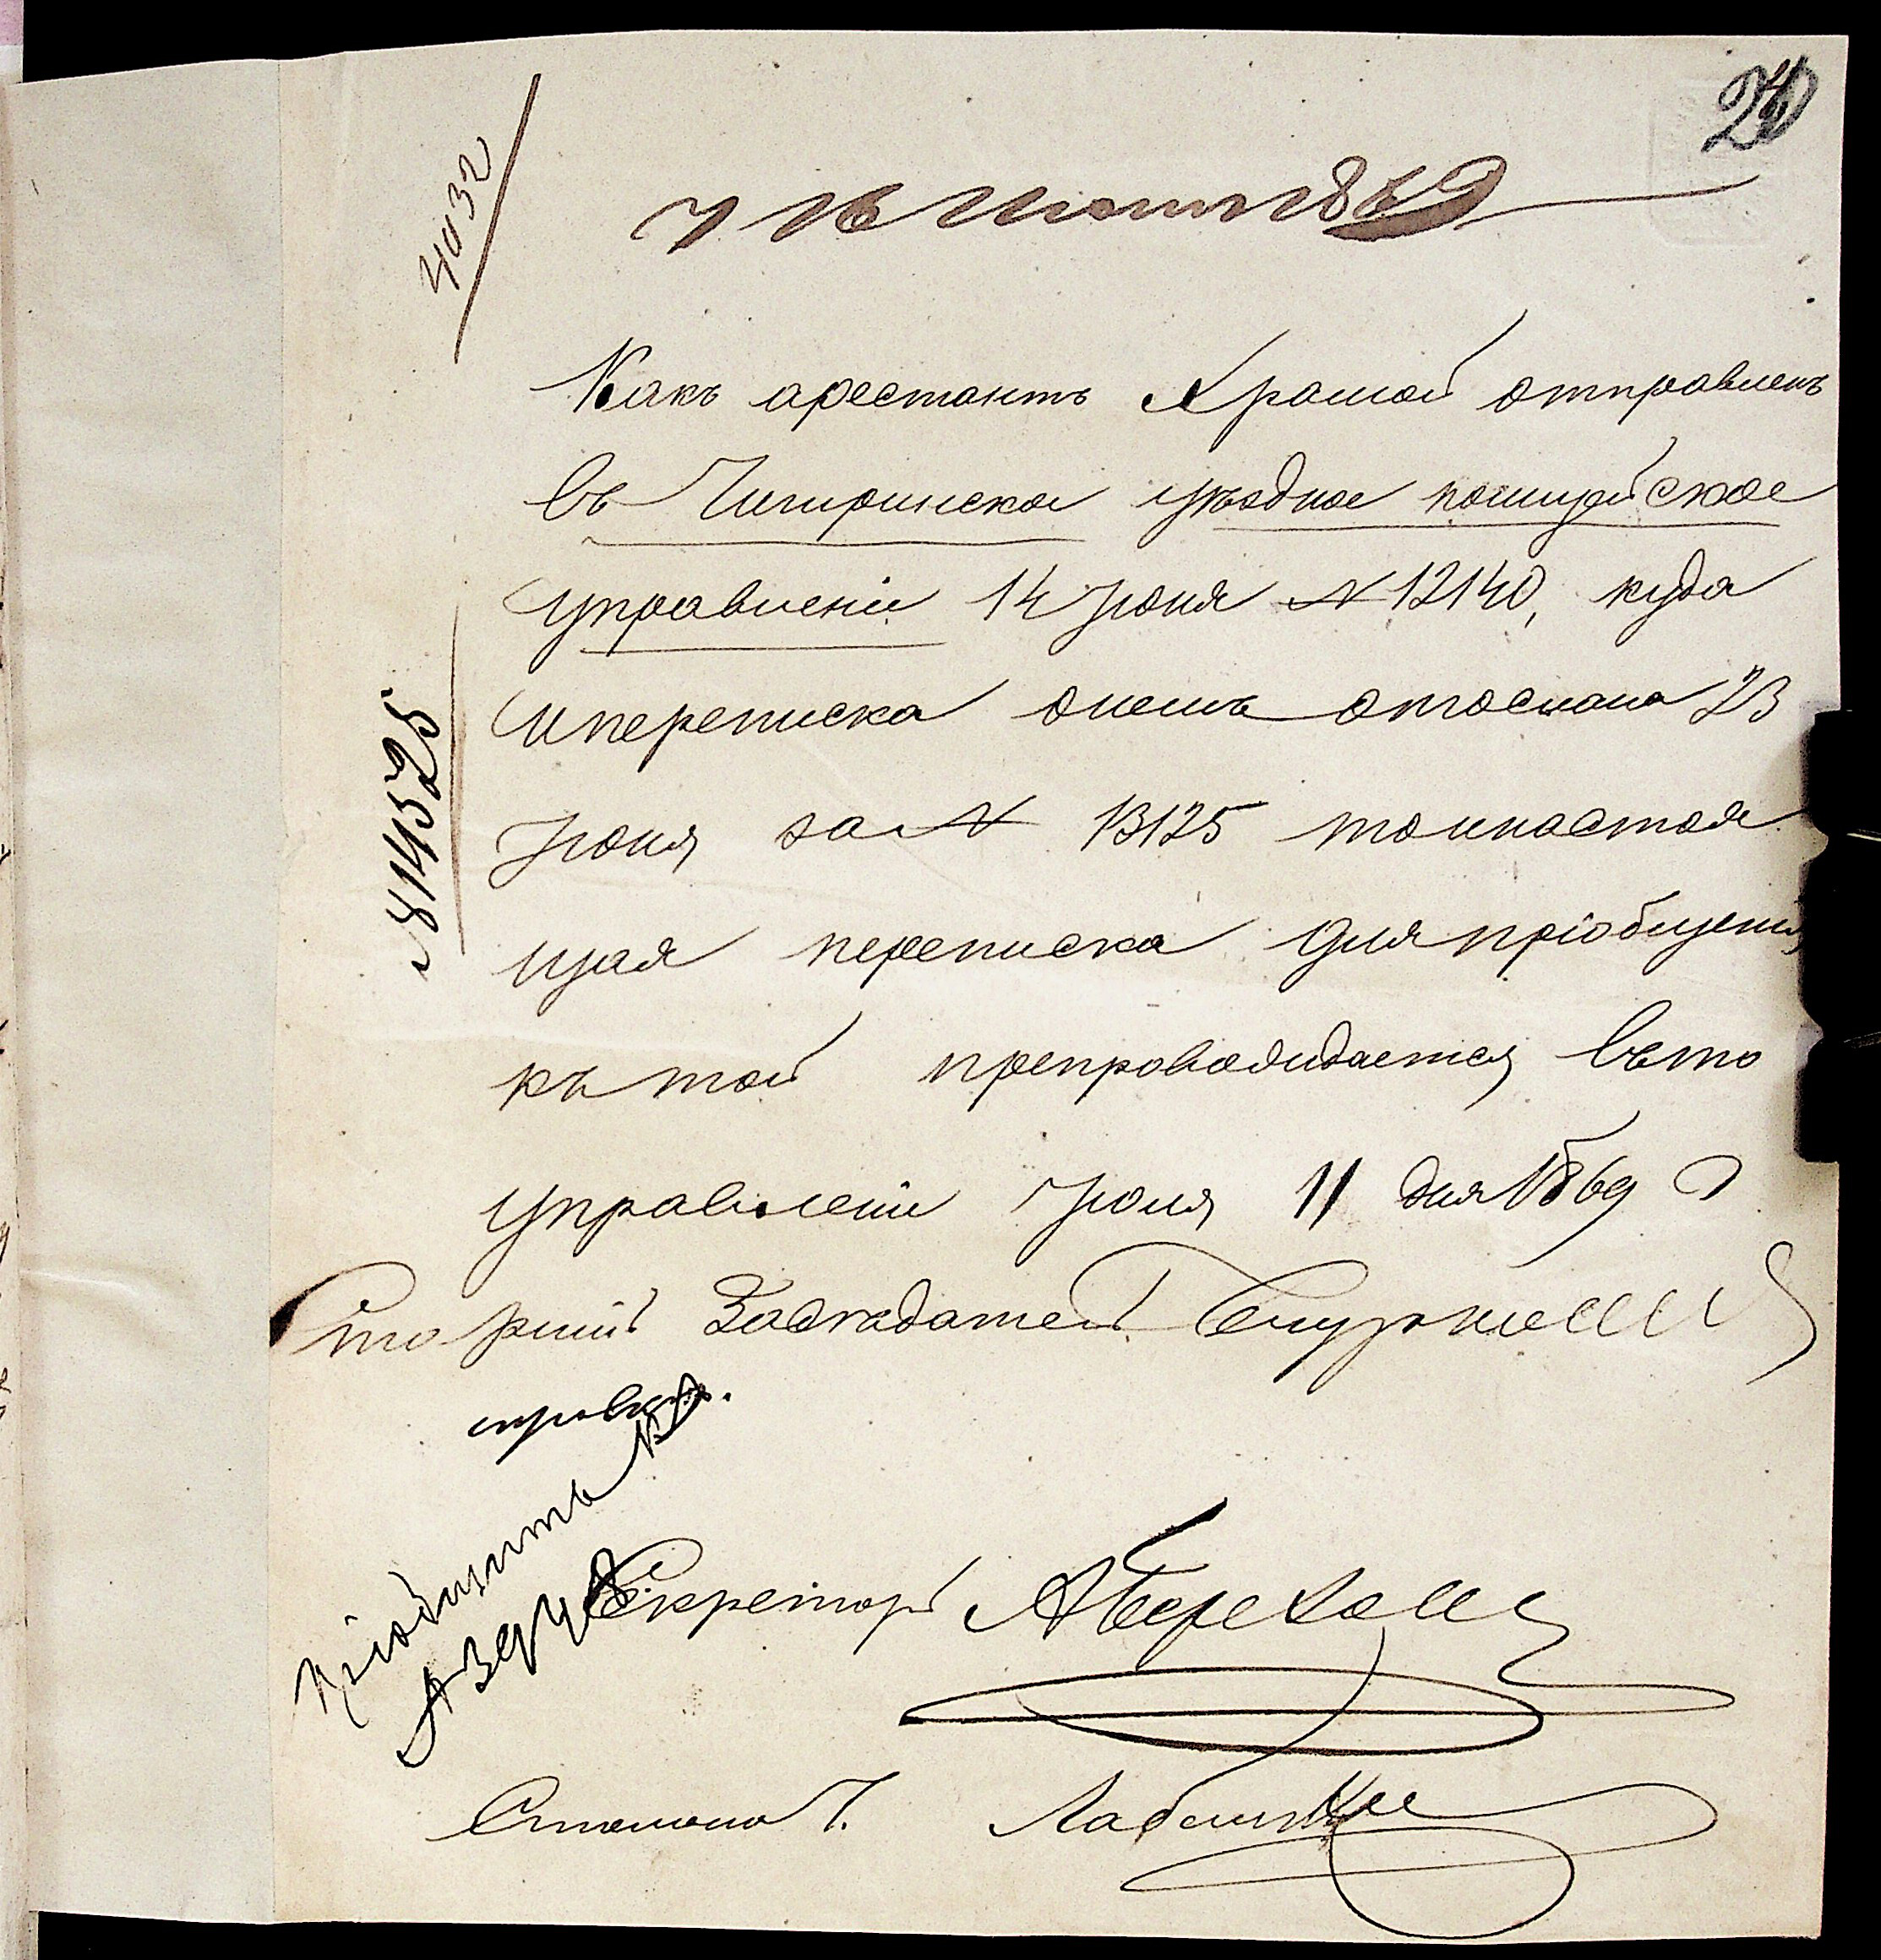 24
4032
16 Июля 1869
Какъ арестантъ Храмой отправленъ
въ Чигиринское уѣздное полицейское
управленіе 14 Іюня № 12140, куда
и переписка онемъ отослана 23
Іюня за № 13125 то и настоя
щая переписка для пріобщенія
къ той препровождается въ то
управленіе Іюля 11 дня 1869 г
№ 14525
Старшій Засѣдатель
Пріобщить къ
Секретарь
Столона